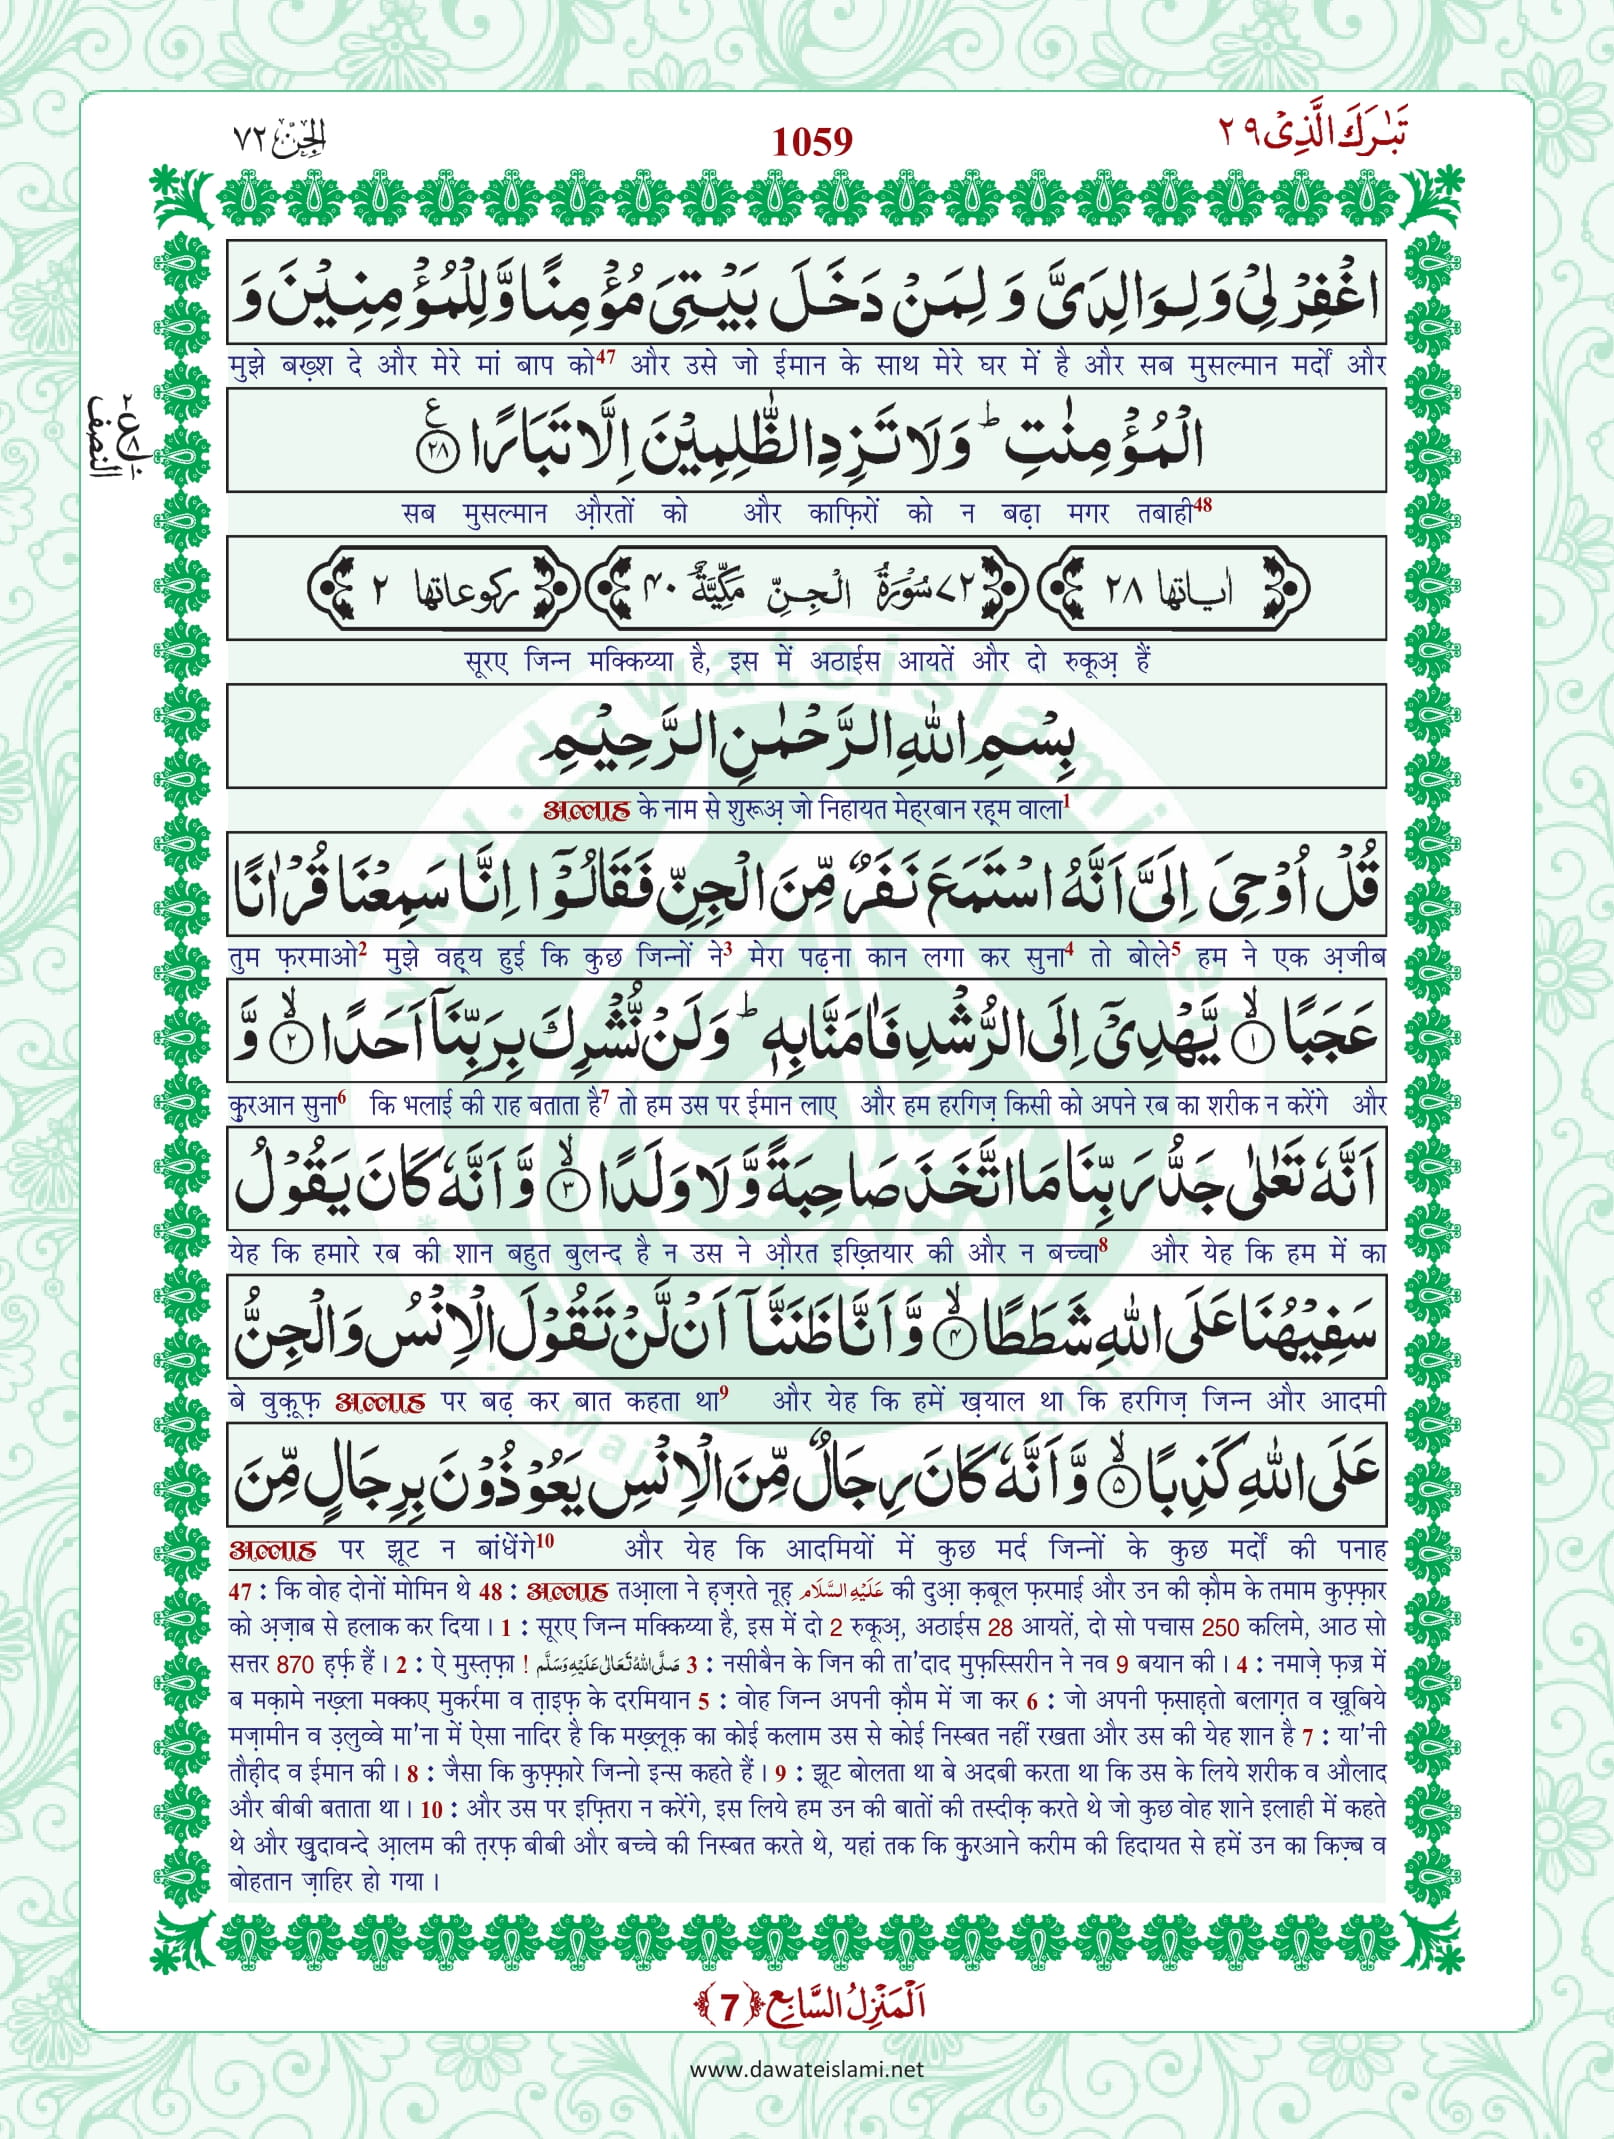 تَبٰرَكَ الَّذِىْ ٢٩
1059
الجن ٧٢
اغْفِرْ لِىْ وَ لِوَالِدَىَّ وَ لِمَنْ دَخَلَ بَيْتِىَ مُؤْمِنًا وَّ لِلْمُؤْمِنِيْنَ وَ
मुझे बख़्श दे और मेरे मां बाप को47 और उसे जो ईमान के साथ मेरे घर में है और सब मुसल्मान मर्दों और
الْمُؤْمِنٰتِ ؕ وَ لَا تَزِدِ الظّٰلِمِيْنَ اِلَّا تَبَارًا ﴿٢٨﴾ ع
सब मुसल्मान औ़रतों को और काफ़िरों को न बढ़ा मगर तबाही48
النصف
اٰیاتھا ٢٨ ٧٢ سُوْرَةُ الْجِنِّ مَكِّيَّةٌ ٤٠ رکوعاتھا ٢
सूरए जिन्न मक्किय्या है, इस में अठाईस आयतें और दो रुकूअ़ हैं
بِسْمِ اللّٰهِ الرَّحْمٰنِ الرَّحِيْمِ
अल्लाह के नाम से शुरूअ़ जो निहायत मेह्रबान रह़्म वाला1
قُلْ اُوْحِىَ اِلَىَّ اَنَّهُ اسْتَمَعَ نَفَرٌ مِّنَ الْجِنِّ فَقَالُوْۤا اِنَّا سَمِعْنَا قُرْاٰنًا
तुम फ़रमाओ2 मुझे वह़्य हुई कि कुछ जिन्नों ने3 मेरा पढ़ना कान लगा कर सुना4 तो बोले5 हम ने एक अ़जीब
عَجَبًا ۙ﴿١﴾ يَّهْدِىْۤ اِلَى الرُّشْدِ فَاٰمَنَّا بِهٖ ؕ وَ لَنْ نُّشْرِكَ بِرَبِّنَاۤ اَحَدًا ۙ﴿٢﴾ وَّ
क़ुरआन सुना6 कि भलाई की राह बताता है7 तो हम उस पर ईमान लाए और हम हरगिज़ किसी को अपने रब का शरीक न करेंगे और
اَنَّهٗ تَعٰلٰى جَدُّ رَبِّنَا مَا اتَّخَذَ صَاحِبَةً وَّ لَا وَلَدًا ۙ﴿٣﴾ وَّ اَنَّهٗ كَانَ يَقُوْلُ
येह कि हमारे रब की शान बहुत बुलन्द है न उस ने औ़रत इख़्तियार की और न बच्चा8 और येह कि हम में का
سَفِيْهُنَا عَلَى اللّٰهِ شَطَطًا ۙ﴿٤﴾ وَّ اَنَّا ظَنَنَّاۤ اَنْ لَّنْ تَقُوْلَ الْاِنْسُ وَ الْجِنُّ
बे वुक़ूफ़ अल्लाह पर बढ़ कर बात कहता था9 और येह कि हमें ख़याल था कि हरगिज़ जिन्न और आदमी
عَلَى اللّٰهِ كَذِبًا ۙ﴿٥﴾ وَّ اَنَّهٗ كَانَ رِجَالٌ مِّنَ الْاِنْسِ يَعُوْذُوْنَ بِرِجَالٍ مِّنَ
अल्लाह पर झूट न बांधेंगे10 और येह कि आदमियों में कुछ मर्द जिन्नों के कुछ मर्दों की पनाह
47 : कि वोह दोनों मोमिन थे 48 : अल्लाह तआ़ला ने ह़ज़रते नूह़ عَلَيْهِ السَّلَام की दुआ़ क़बूल फ़रमाई और उन की क़ौम के तमाम कुफ़्फ़ार
को अ़ज़ाब से हलाक कर दिया । 1 : सूरए जिन्न मक्किय्या है, इस में दो 2 रुकूअ़, अठाईस 28 आयतें, दो सो पचास 250 कलिमे, आठ सो
सत्तर 870 ह़र्फ़ हैं । 2 : ऐ मुस्त़फ़ा ! صَلَّى اللهُ تَعَالٰى عَلَيْهِ وَسَلَّم 3 : नसीबैन के जिन की ता'दाद मुफ़स्सिरीन ने नव 9 बयान की । 4 : नमाज़े फ़ज्र में
ब मक़ामे नख़्ला मक्कए मुकर्रमा व त़ाइफ़ के दरमियान 5 : वोह जिन्न अपनी क़ौम में जा कर 6 : जो अपनी फ़साह़तो बलाग़त व ख़ूबिये
मज़ामीन व उ़लुव्वे मा'ना में ऐसा नादिर है कि मख़्लूक़ का कोई कलाम उस से कोई निस्बत नहीं रखता और उस की येह शान है 7 : या'नी
तौह़ीद व ईमान की । 8 : जैसा कि कुफ़्फ़ारे जिन्नो इन्स कहते हैं । 9 : झूट बोलता था बे अदबी करता था कि उस के लिये शरीक व औलाद
और बीबी बताता था । 10 : और उस पर इफ़्तिरा न करेंगे, इस लिये हम उन की बातों की तस्दीक़ करते थे जो कुछ वोह शाने इलाही में कहते
थे और ख़ुदावन्दे आ़लम की त़रफ़ बीबी और बच्चे की निस्बत करते थे, यहां तक कि क़ुरआने करीम की हिदायत से हमें उन का किज़्ब व
बोहतान ज़ाहिर हो गया ।
اَلْمَنْزِلُ السَّابِع ﴿7﴾
www.dawateislami.net